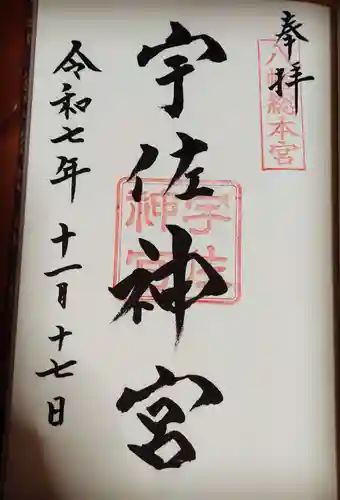 奉拝
八幡総本宮
宇佐神宮
宇佐神宮
令和七年 十一月十七日